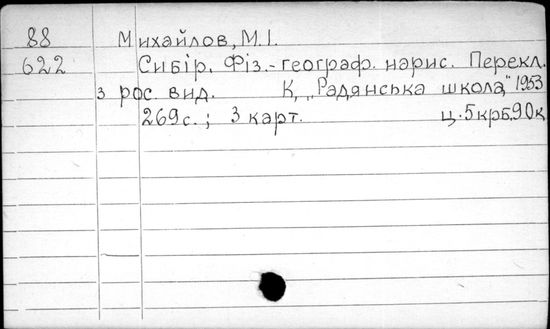 88 Михайлов, М.І.
622 Сибір. Фіз.-географ. нарис. Перекл.
з рос. вид. К, „Радянська школа," 1953
269с.; 3 карт. ц. 5крб.90к